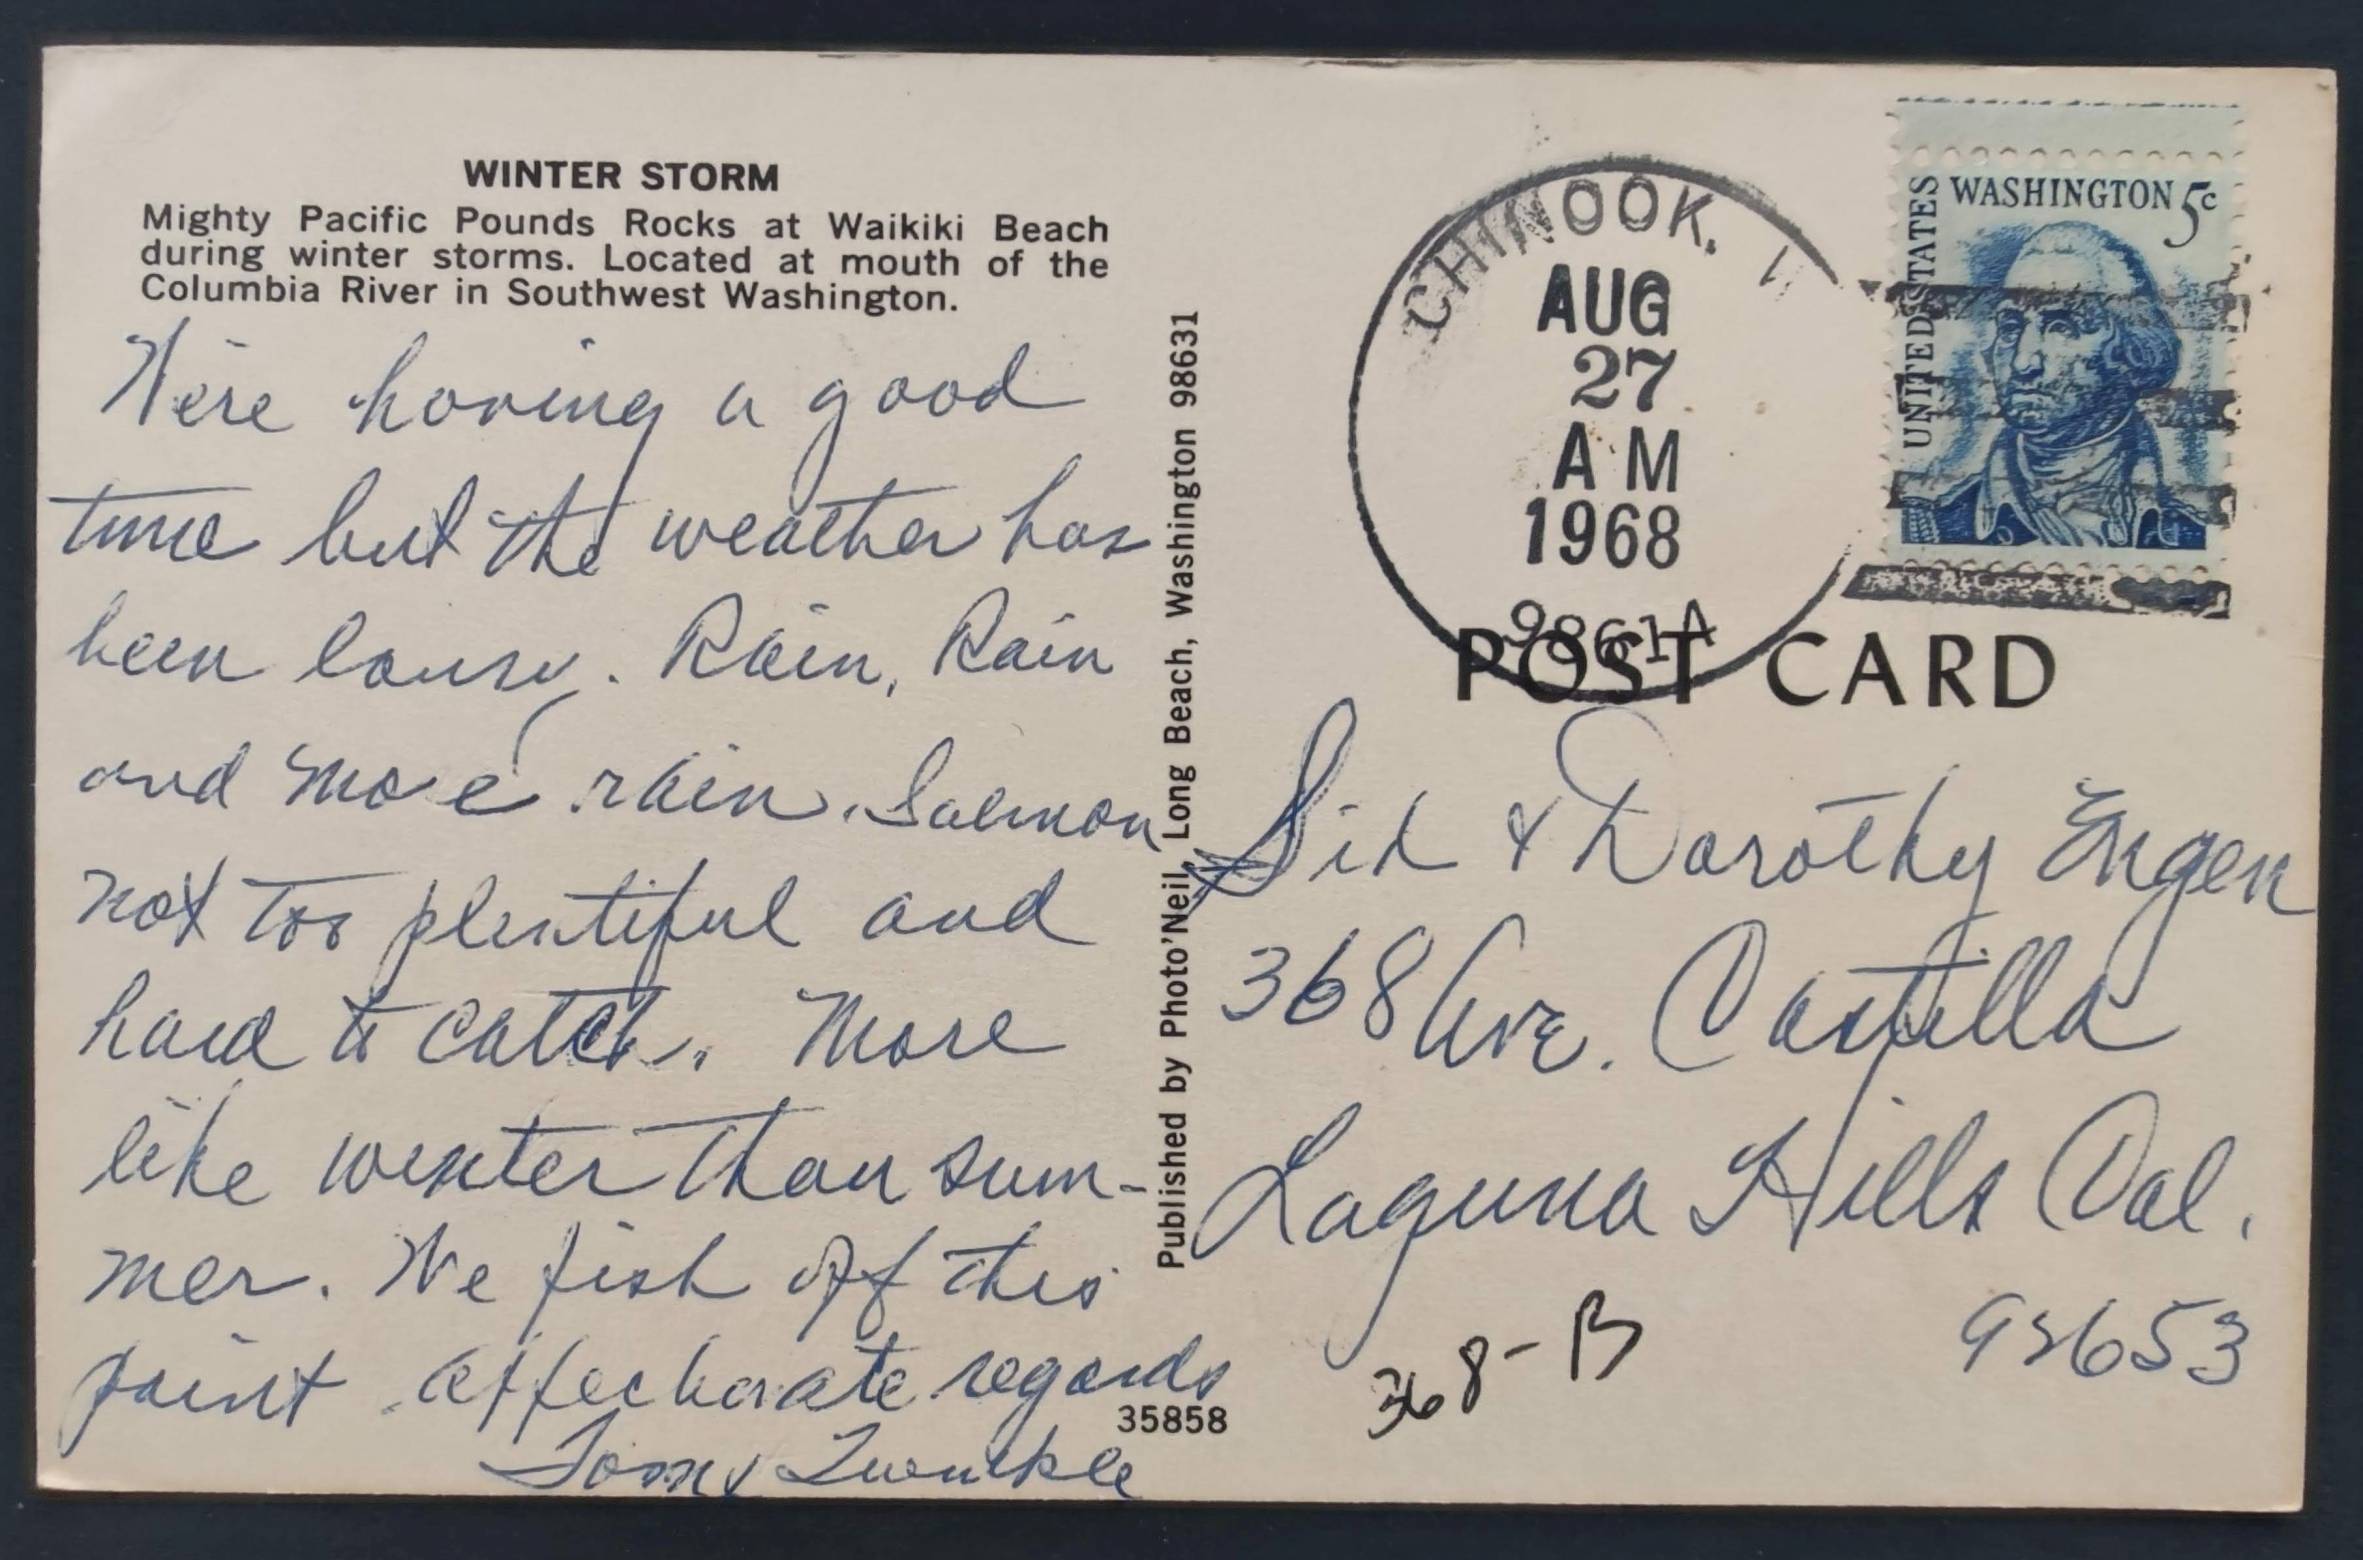 WINTER STORM
Mighty Pacific Pounds Rocks at Waikiki Beach
during winter storms. Located at mouth of the
Columbia River in Southwest Washington.
We're having a good
time but the weather has
been lousy. Rain, Rain
and more rain. Salmon
not too plentiful and
hard to catch. More
like winter than sum-
mer. We fish off this
point. Affectionate regards
Tom & Twinkle
35858
Published by Photo'Neil, Long Beach, Washington 98631
CHINOOK, W
AUG
27
AM
1968
UNITED STATES
WASHINGTON 5c
POST CARD
Sid & Dorothy Engen
368 Ave. Castilla
Laguna Hills Cal.
92653
368-B